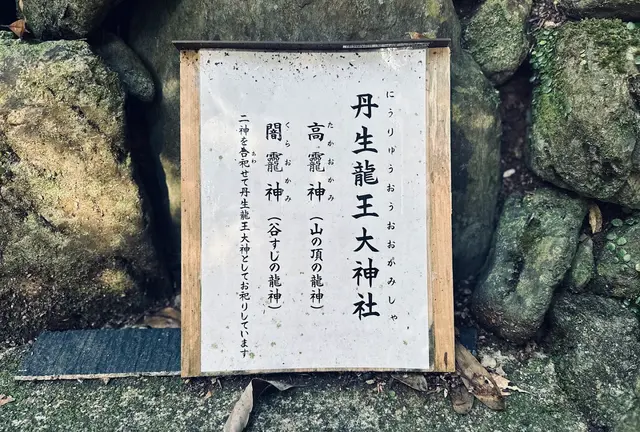 丹生龍王大神社
にうりゅうおうおおがみしゃ
高龗神（山の頂の龍神）
たかおかみ
闇龗神（谷すじの龍神）
くらおかみ
二神を合祀せて丹生龍王大神としてお祀りしています
あわ